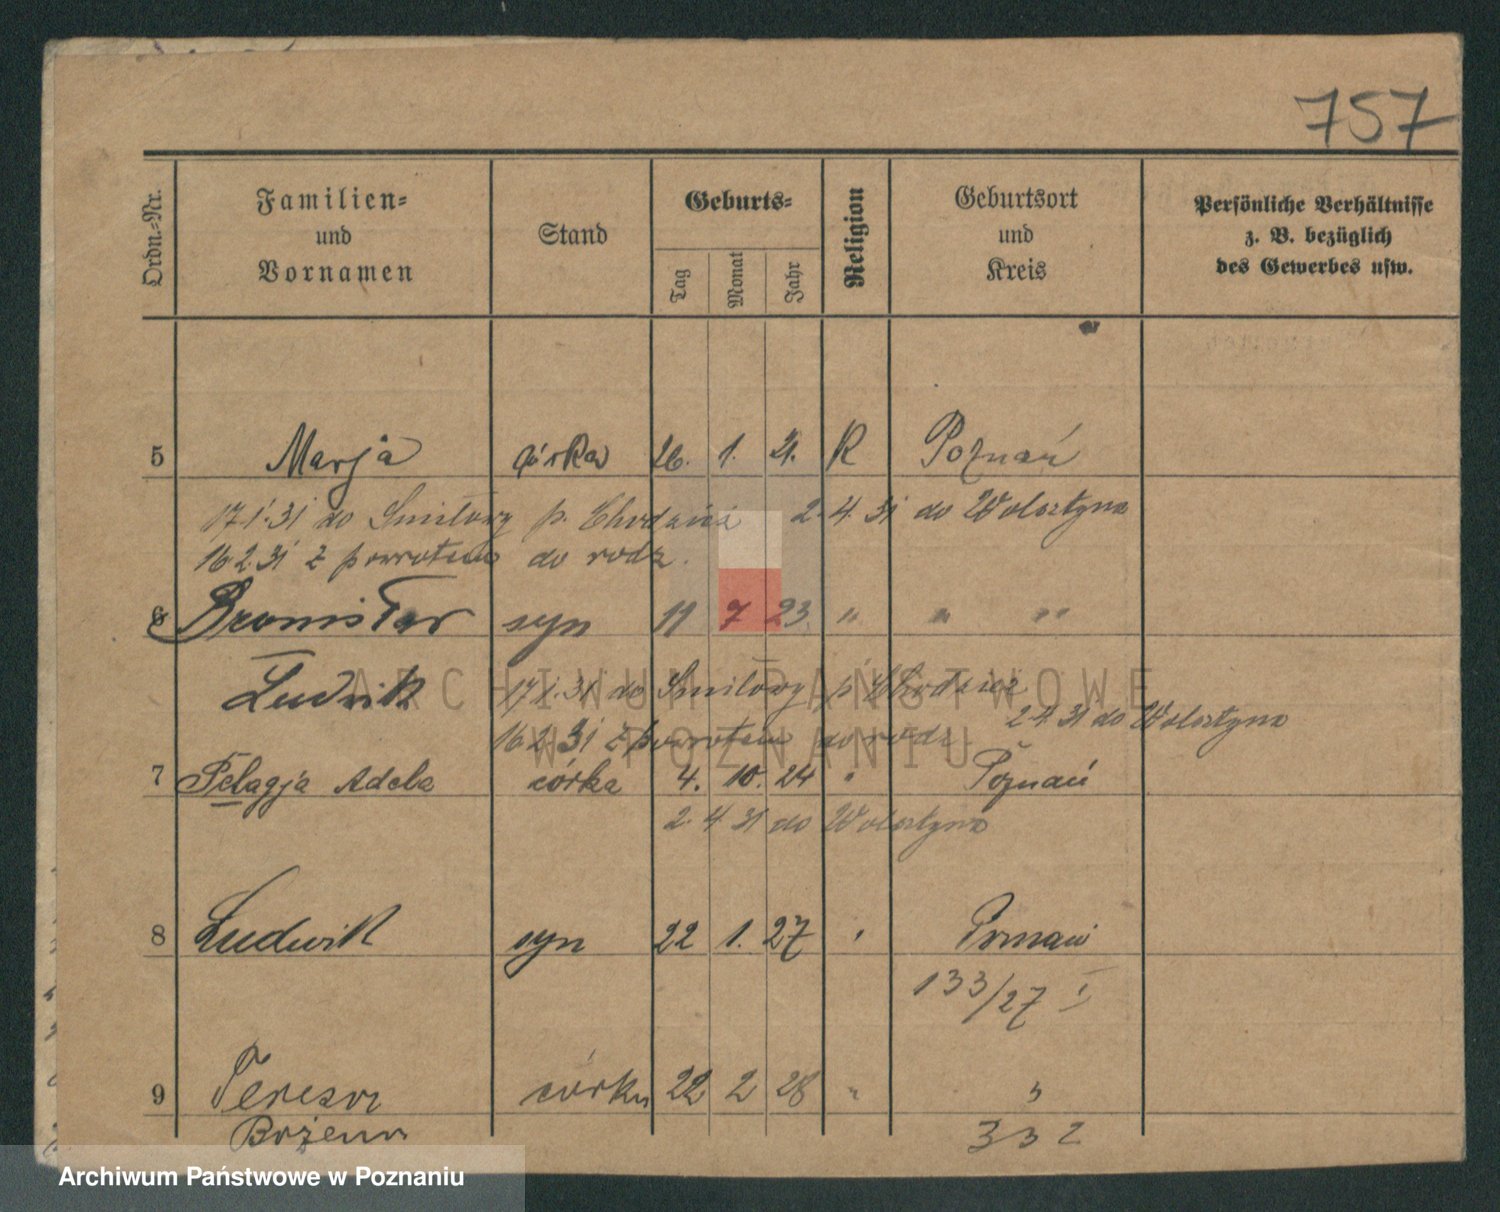 757
Ordn.-Nr.
Familien-
und
Vornamen
Stand
Geburts-
Tag
Monat
Jahr
Religion
Geburtsort
und
Kreis
Persönliche Verhältnisse
z. B. bezüglich
des Gewerbes usw.
5 Marja córka 26. 1. 21. R Poznań
17.1.31 do Smiłowy p. Chodzież 2.4.31 do Wolsztyna
16.2.31 z powrotem do rodz.
6 Bronisław syn 11 7 23 " " "
Ludwik 17.1.31 do Smiłowy p. Chodzież
2.4.31 do Wolsztyna
16.2.31 z powrotem do rodz.
7 Pelagja Adela córka 4. 10. 24 " Poznań
2.4.31 do Wolsztyna
8 Ludwik syn 22 1. 27 " Poznań
133/27 I
9 Teresa córka 22 2 28 " "
Bożena 332
ARCHIWUM PAŃSTWOWE
W POZNANIU
Archiwum Państwowe w Poznaniu